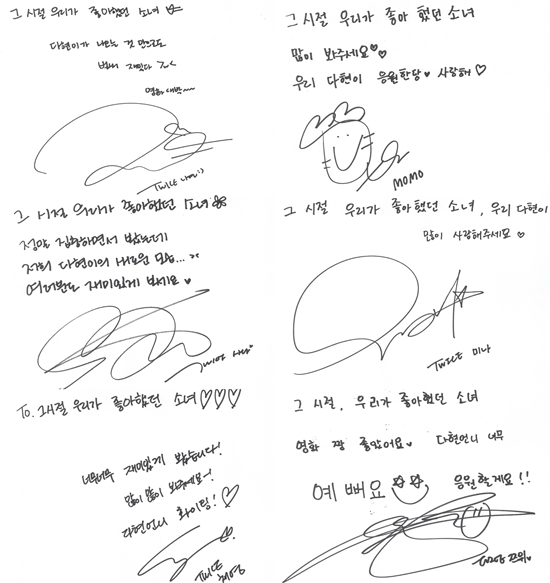 그 시절 우리가 좋아했던 소녀
다현이가 나오는 것 만으로도
벌써 재밌다 ㅈㅅ
영화 대박~~~
TWICE 나연:)
그 시절 우리가 좋아했던 소녀
많이 봐주세요♡♡
우리 다현이 응원한당♥ 사랑해♡
MOMO
그 시절 우리가 좋아했던 소녀
정말 집중하면서 봤는데
저희 다현이의 새로운 모습... ><
여러분도 재미있게 보세요♥
TWICE 사나
그 시절 우리가 좋아했던 소녀, 우리 다현이
많이 사랑해주세요♡
TWICE 미나
To. 그시절 우리가 좋아했던 소녀♡♡♡
너무너무 재미있게 봤습니다!
많이 많이 봐주세요~!
다현언니 화이팅!♡
TWICE 채영
그 시절, 우리가 좋아했던 소녀
영화 짱 좋았어요♥ 다현언니 너무
예뻐요 응원할게요!!
TWICE 쯔위♥